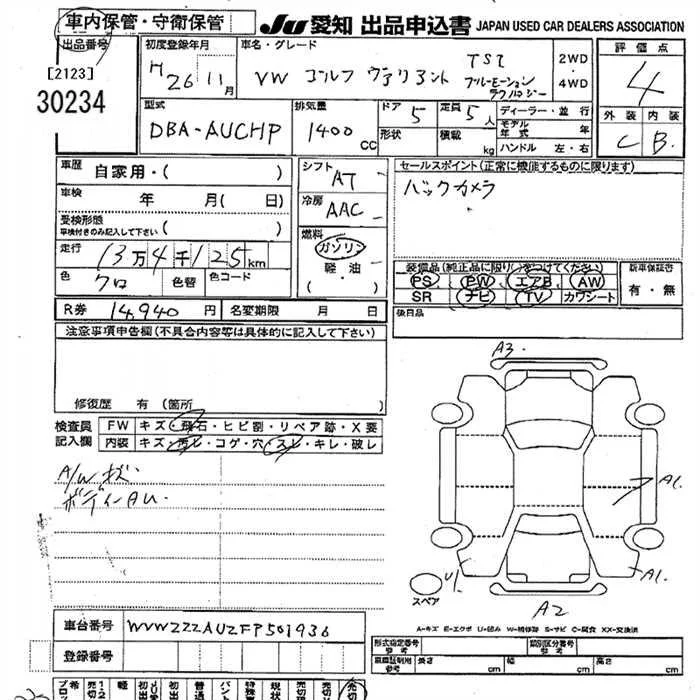 車内保管・守衛保管
JU 愛知 出品申込書 JAPAN USED CAR DEALERS ASSOCIATION
出品番号 初度登録年月 車名・グレード 評価点
[2123]
30234
H 26年 11月 VW ゴルフ ヴァリアント TSI
ブルーモーション
テクノロジー
2WD
・
4WD
4
型式 排気量 ドア 定員 ディーラー・並行 外装 内装
DBA-AUCHP 1400 CC 5 5人
形状 積載 kg
モデル年式 年
ハンドル 左・右
C B.
車歴 自家用・( )
シフト AT
セールスポイント(正常に機能するものに限ります)
バックカメラ
車検 年 月( 日)
冷房 AAC
受検形態
車検付きのみ記入して下さい ( )
燃料
ガソリン
軽・油
( )
走行 13万4千125km
色 クロ 色替 色コード
装備品(純正品に限り○をつけてください) 新車保証書
PS PW エアB AW
SR ナビ TV カワシート
有・無
R券 14,940 円 名変期限 月 日
後日品
注意事項申告欄(不具合内容等は具体的に記入して下さい)
修復歴 有 (箇所
検査員
記入欄
FW キズ・飛石・ヒビ割・リペア跡・X要
内装 キズ・汚レ・コゲ・穴・スレ・キレ・破レ
A/W キズ
ボディーAU.
A3.
A1.
U1.
A1.
A2
スペア
A-キズ E-エクボ U-凹み W-補修跡 S-サビ C-腐食 XX-交換済
車台番号 WVWZZZAUZFP501936
登録番号
形式指定番号 類別区分番号
車庫証明用 長さ cm 幅 cm 高さ cm